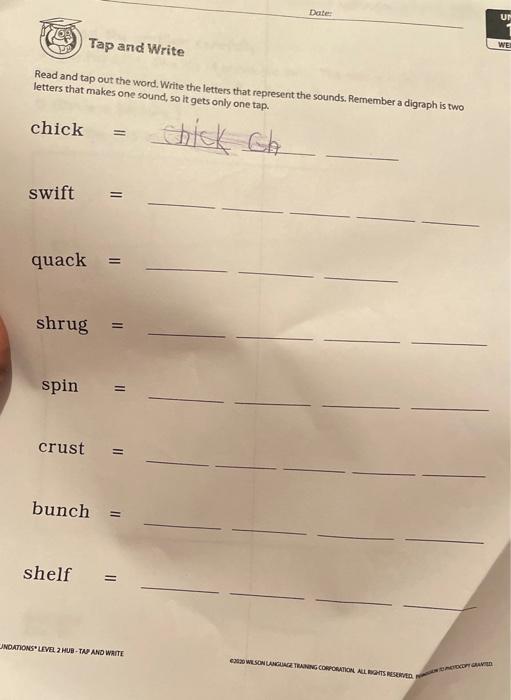 Date:
UN
1
WE
Tap and Write
Read and tap out the word. Write the letters that represent the sounds. Remember a digraph is two
letters that makes one sound, so it gets only one tap.
chick = chick Ch
swift =
quack =
shrug =
spin =
crust =
bunch =
shelf =
UNDATIONS® LEVEL 2 HUB - TAP AND WRITE
©2020 WILSON LANGUAGE TRAINING CORPORATION. ALL RIGHTS RESERVED. PERMISSION TO PHOTOCOPY GRANTED.